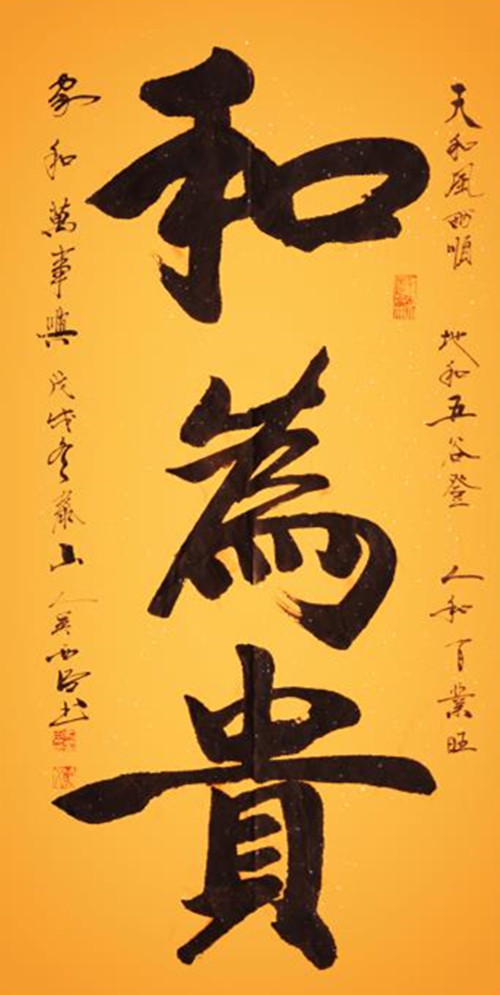 天和風雨順 地和五谷登 人和百業旺
和為貴
家和萬事興 戊戌冬 山人